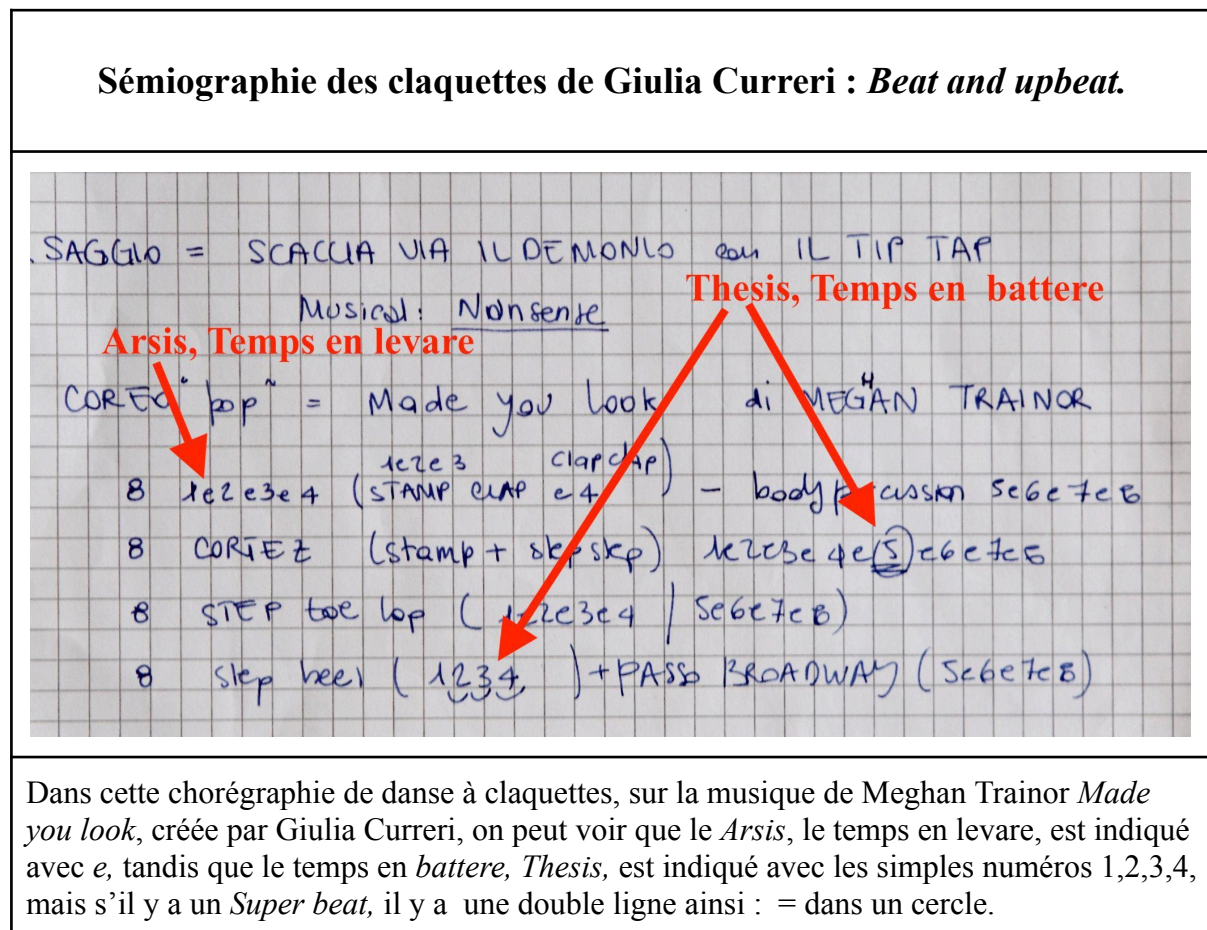 Sémiographie des claquettes de Giulia Curreri : Beat and upbeat.
.SAGGIO = SCACCIA VIA IL DEMONIO con IL TIP TAP
Thesis, Temps en battere
Musical: Nonsense
Arsis, Temps en levare
COREO "pop" = Made you look di MEGHAN TRAINOR
1e2e3 clapclap
8 1e2e3e4 (STAMP CLAP e4) - body percussion 5e6e7e8
8 CORTEZ (stamp + step step) 1e2e3e4e(5)e6e7e8
8 STEP toe lop (1e2e3e4 / 5e6e7e8)
8 step heel (1234) + PASSO BROADWAY (5e6e7e8)
Dans cette chorégraphie de danse à claquettes, sur la musique de Meghan Trainor Made
you look, créée par Giulia Curreri, on peut voir que le Arsis, le temps en levare, est indiqué
avec e, tandis que le temps en battere, Thesis, est indiqué avec les simples numéros 1,2,3,4,
mais s'il y a un Super beat, il y a une double ligne ainsi : = dans un cercle.